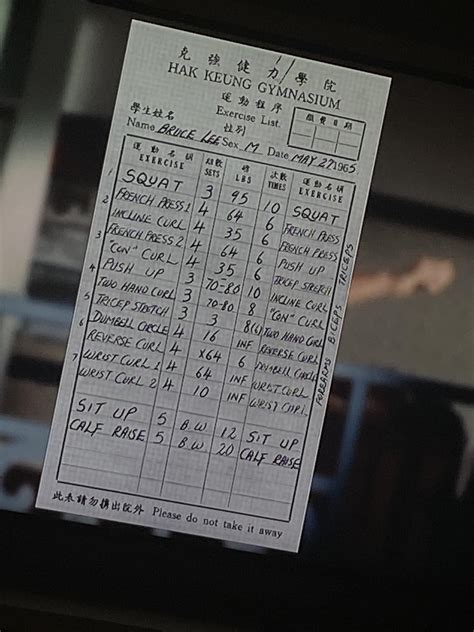 克強健力學院
HAK KEUNG GYMNASIUM
運動程序
Exercise List.
繳費日期
學生姓名 性別
Name BRUCE LEE Sex M Date MAY 27 1965
運動名稱 組數 磅 次數 運動名稱
EXERCISE SETS LBS TIMES EXERCISE
1 SQUAT 3 95 10 SQUAT
2 FRENCH PRESS 1 4 64 6 FRENCH PRESS
INCLINE CURL 4 35 6 FRENCH PRESS
3 FRENCH PRESS 2 4 64 6 PUSH UP
"CON" CURL 4 35 6 TRICEP STRETCH
4 PUSH UP 3 70-80 10 INCLINE CURL
TWO HAND CURL 3 70-80 8 "CON" CURL
5 TRICEP STRETCH 3 3 8(6) TWO HAND CURL
6 DUMBELL CIRCLE 4 16 INF REVERSE CURL
REVERSE CURL 4 X64 6 DUMBELL CIRCLE
7 WRIST CURL 1 4 64 INF WRIST CURL
WRIST CURL 2 4 10 INF WRIST CURL
SIT UP 5 B.W 12 SIT UP
CALF RAISE 5 B.W 20 CALF RAISE
TRICEPS
BICEPS
FOREARMS
此表請勿攜出院外 Please do not take it away